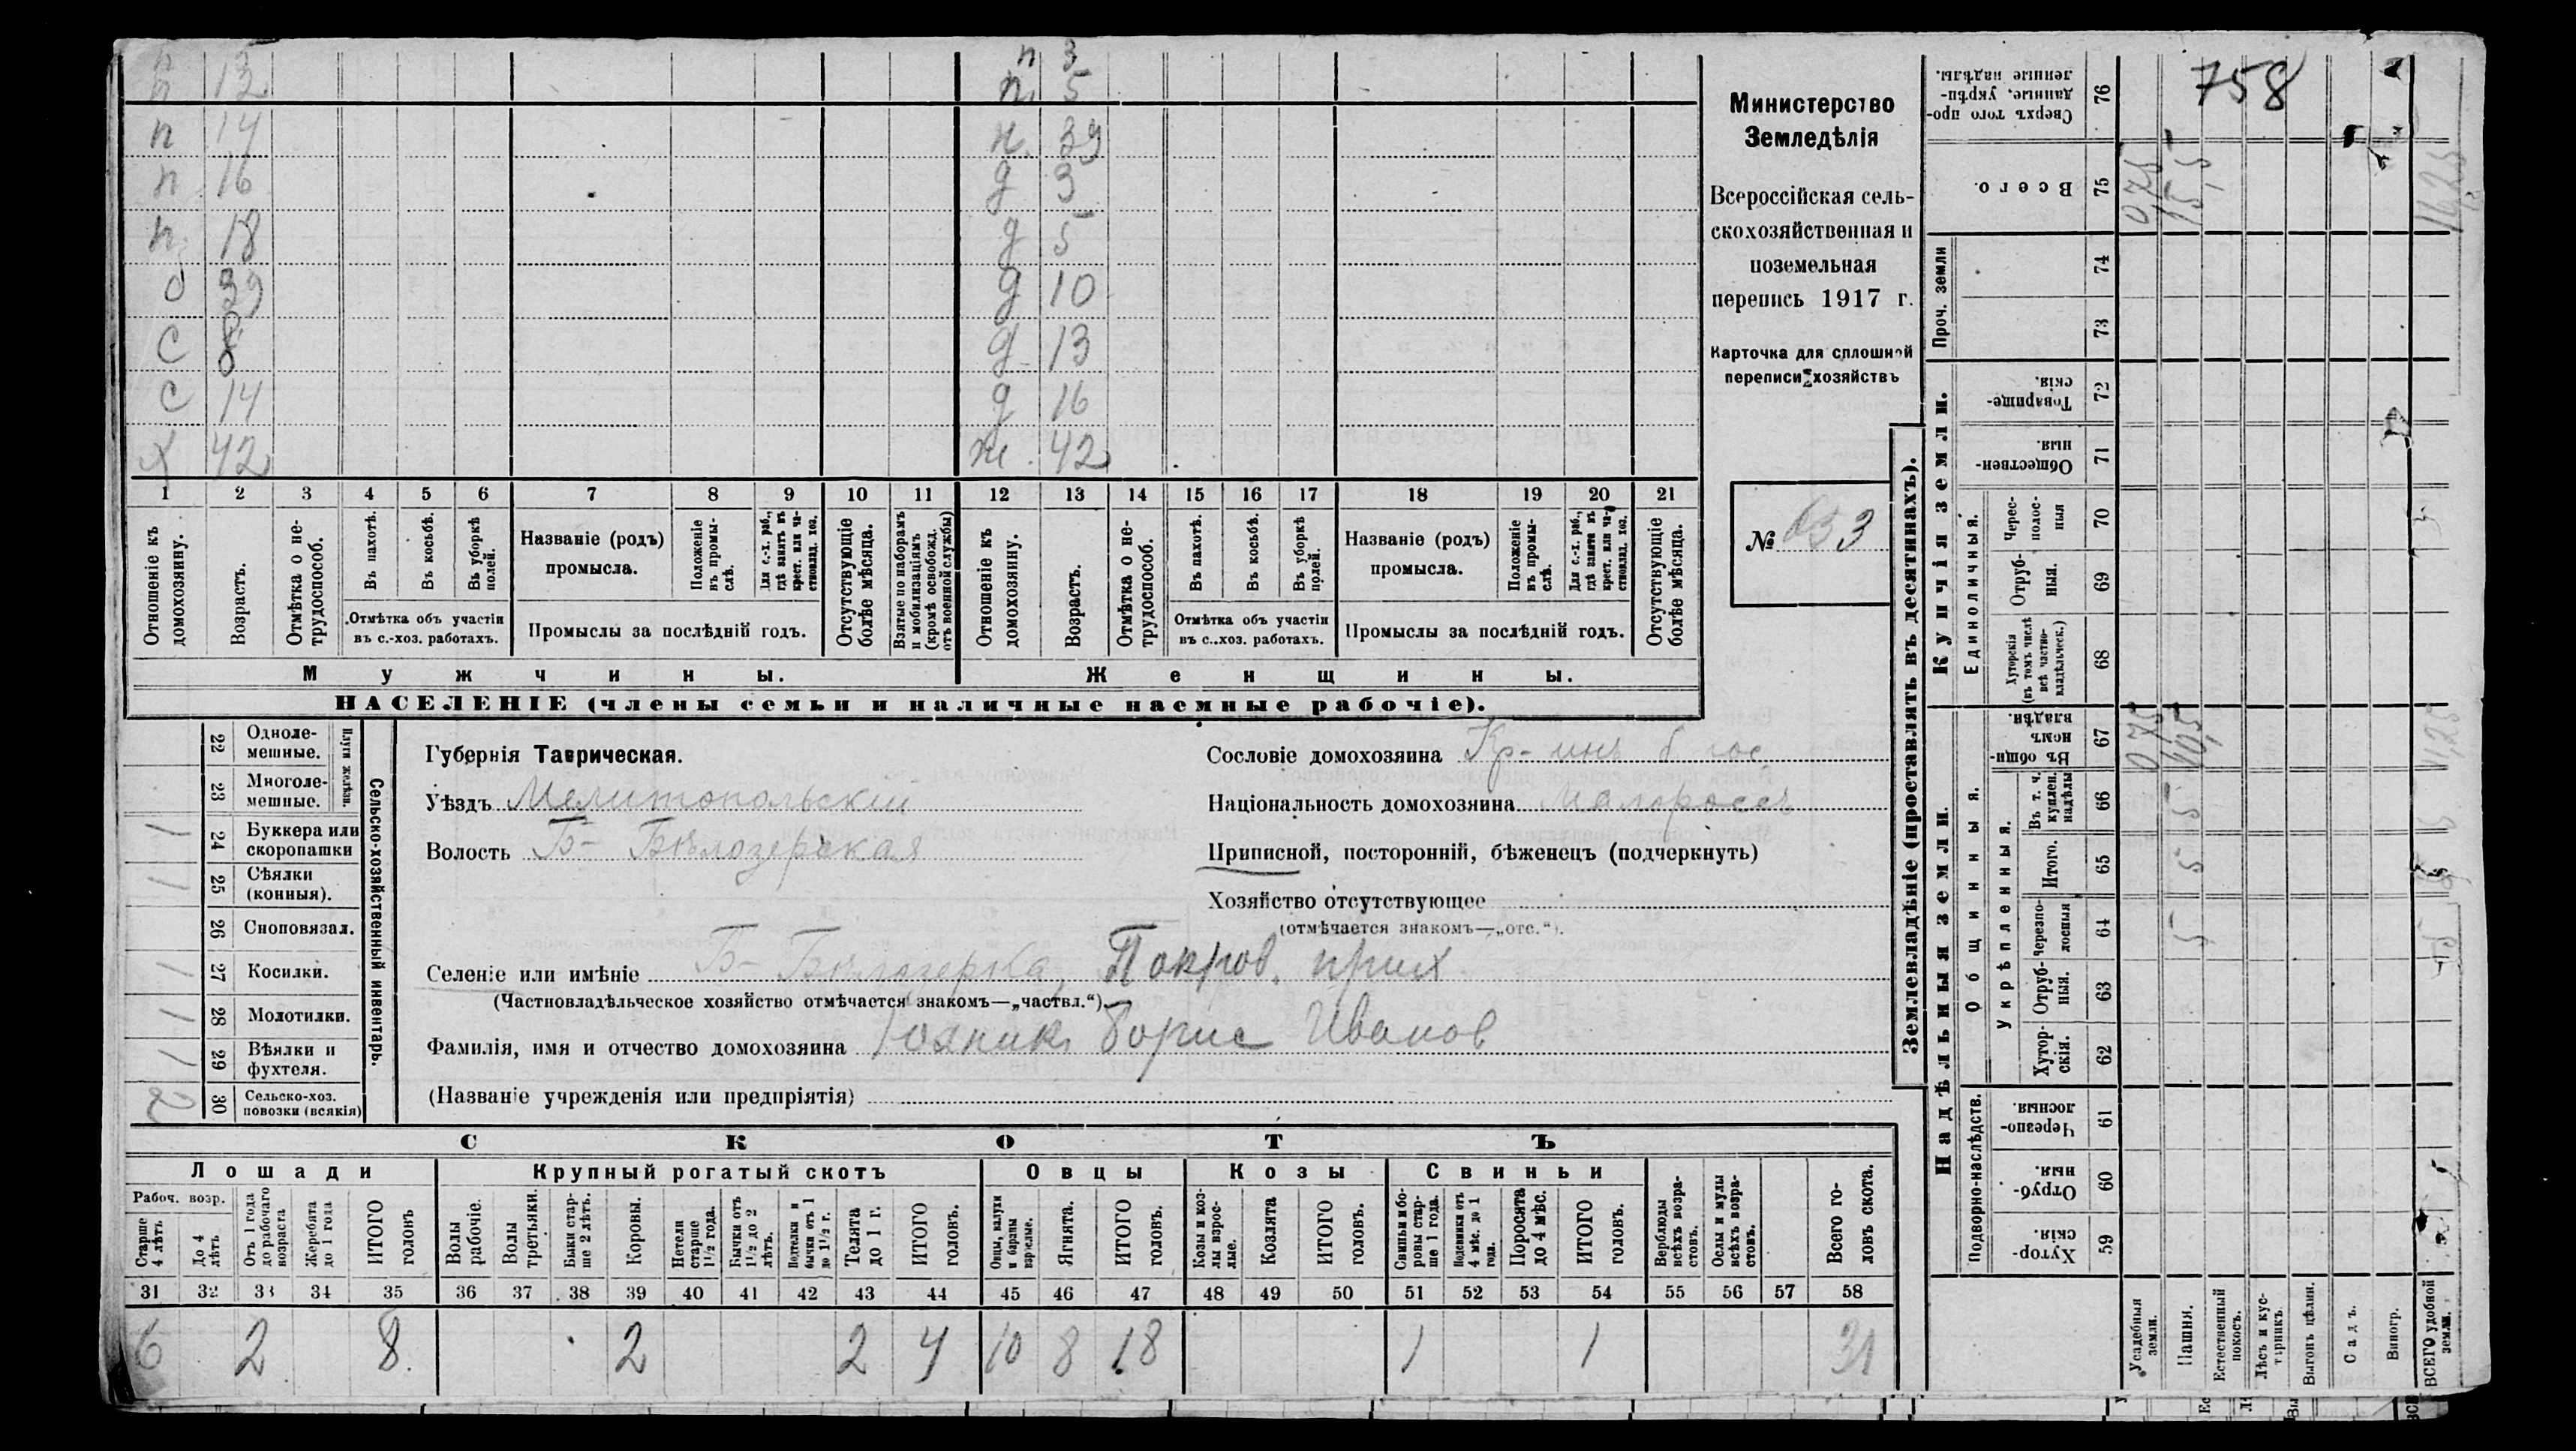 п 13 п 3
п 12 п. 5
п 14 п. 39
п 16 д 3
п. 18 д 5
о 39 д 10
с 8 д 13
с 14 д 16
х 42 ж. 42
1 2 3 4 5 6 7 8 9 10 11 12 13 14 15 16 17 18 19 20 21
Отношеніе къ домохозяину.
Возрастъ.
Отмѣтка о не-
трудоспособ.
Въ пахотѣ.
Въ косьбѣ.
Въ уборкѣ полей.
Отмѣтка объ участіи
въ с.-хоз. работахъ.
Названіе (родъ)
промысла.
Положеніе
въ промы-
слѣ.
Для с.-х. раб.,
гдѣ занятъ въ
крест. или ча-
стновлад. хоз.
Промыслы за послѣдній годъ.
Отсутствующіе
болѣе мѣсяца.
Взятые по наборамъ
и мобилизаціямъ
(кромѣ освобожд.
отъ военной службы)
Отношеніе къ
домохозяину.
Возрастъ.
Отмѣтка о не-
трудоспособ.
Въ пахотѣ.
Въ косьбѣ.
Въ уборкѣ
полей.
Отмѣтка объ участіи
въ с..хоз. работахъ.
Названіе (родъ)
промысла.
Положеніе
въ промы-
слѣ.
Для с.-х. раб.,
гдѣ занята въ
крест. или ча-
стновлад. хоз.
Промыслы за послѣдній годъ.
Отсутствующіе
болѣе мѣсяца.
Мужчины. Женщины.
НАСЕЛЕНІЕ (члены семьи и наличные наемные рабочіе).
Министерство
Земледѣлія
Всероссійская сель-
скохозяйственная и
поземельная
перепись 1917 г.
Карточка для сплошной
переписи хозяйствъ
№ 633
22 Одноле-
мешные.
23 Многоле-
мешные.
Плуги желѣзн.
1 24 Буккера или
скоропашки
1 25 Сѣялки
(конныя).
26 Сноповязал.
1 27 Косилки.
1 28 Молотилки.
1 29 Вѣялки и
фухтеля.
2 30 Сельско-хоз.
повозки (всякія)
Сельско-хозяйственный инвентарь.
Губернія Таврическая.
Уѣздъ Мелитопольскій
Волость Б- Бѣлозерская
Сословіе домохозяина Кр-инъ б гос
Національность домохозяина Малороссъ
Приписной, посторонній, бѣженецъ (подчеркнуть)
Хозяйство отсутствующее
(отмѣчается знакомъ—„отс.“).
Селеніе или имѣніе Б- Бѣлозерка, Покров. прих
(Частновладѣльческое хозяйство отмѣчается знакомъ—„частвл.“)
Фамилія, имя и отчество домохозяина Борис Иванов
(Названіе учрежденія или предпріятія)
СКОТЪ
Лошади Крупный рогатый скотъ Овцы Козы Свиньи
Рабоч. возр.
Старше
4 лѣтъ
До 4
лѣтъ
Отъ 1 года
до рабочаго
возраста
Жеребята
до 1 года
ИТОГО
головъ
Волы
рабочіе.
Волы
третьяки.
Быки стар-
ше 2 лѣтъ.
Коровы.
Нетели
старше
1½ года.
Бычки отъ
1½ до 2
лѣтъ.
Подтелки и
бычки отъ 1
до 1½ г.
Телята
до 1 г.
ИТОГО
головъ.
Овцы, валухи
и бараны
взрослые.
Ягнята.
ИТОГО
головъ.
Козы и коз-
лы взрос-
лые.
Козлята
ИТОГО
головъ.
Свиньи и бо-
ровы стар-
ше 1 года.
Подсвинки отъ
4 мѣс. до 1
года.
Поросята
до 4 мѣс.
ИТОГО
головъ.
Верблюды
всѣхъ возра-
стовъ.
Ослы и мулы
всѣхъ возра-
стовъ.
Всего го-
ловъ скота.
31 32 33 34 35 36 37 38 39 40 41 42 43 44 45 46 47 48 49 50 51 52 53 54 55 56 57 58
6 2 8 2 2 4 10 8 18 1 1 31
758
Землевладѣніе (проставлять въ десятинахъ).
Надѣльныя земли. Купчія земли. Проч. земли
Подворно-наслѣдств. Общинныя. Укрѣпленныя. Единоличныя.
59 Хутор-
скія.
60 Отруб-
ныя.
61 Черезпо-
лосныя.
62 Хутор-
скія.
63 Отруб-
ныя.
64 Черезпо-
лосныя
65 Итого.
66 Въ т. ч.
куплен.
надѣлы
67 Въ общи-
номъ
владѣн.
68 Хуторскія
(въ томъ числѣ
всѣ частно-
владѣльческ.)
69 Отруб-
ныя.
70 Черес-
полос-
ныя
71 Обществен-
ныя.
72 Товарище-
скія.
73
74
75 Всего.
76 Сверхъ того про-
данные, укрѣп-
ленные надѣлы.
Усадебныя
земли.
0,75 0,75
Пашня.
5 5 5 10,5 15,5
Естественный
покосъ.
Лѣсъ и кус-
тарникъ.
Выгонъ цѣлин.
Садъ.
Виногр.
ВСЕГО удобной
земли.
5 5 11,25 16,25